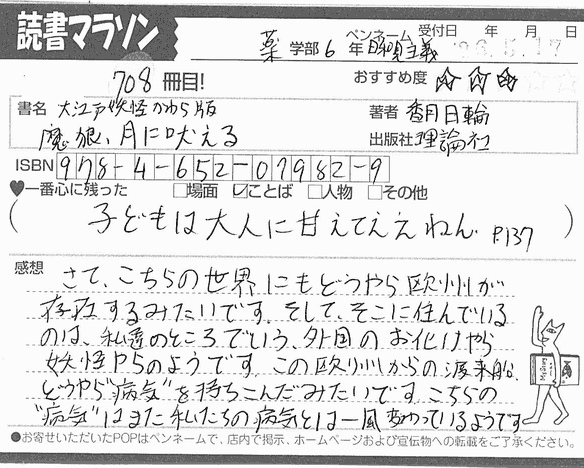 読書マラソン
薬 学部 6 年 ペンネーム 受付日 年 月 日
708 冊目!
おすすめ度 ☆☆☆
書名 大江戸妖怪かわら版
魔狼、月に吠える
著者 香月日輪
出版社 理論社
ISBN 978-4-652-07982-9
♥一番心に残った □場面 ☑ことば □人物 □その他
(子どもは大人に甘えてええねん P.137)
感想
さて、こちらの世界にもどうやら欧州が
存在するみたいです。そして、そこに住んでいる
のは、私達のところでいう、外国のお化けやら
妖怪やらのようです。この欧州からの渡来船、
どうやら"病気"を持ちこんだみたいです。こちらの
"病気"はまた私たちの病気とは一風変わっているようです
●お寄せいただいたPOPはペンネームで、店内で掲示、ホームページおよび宣伝物への転載をご了承ください。